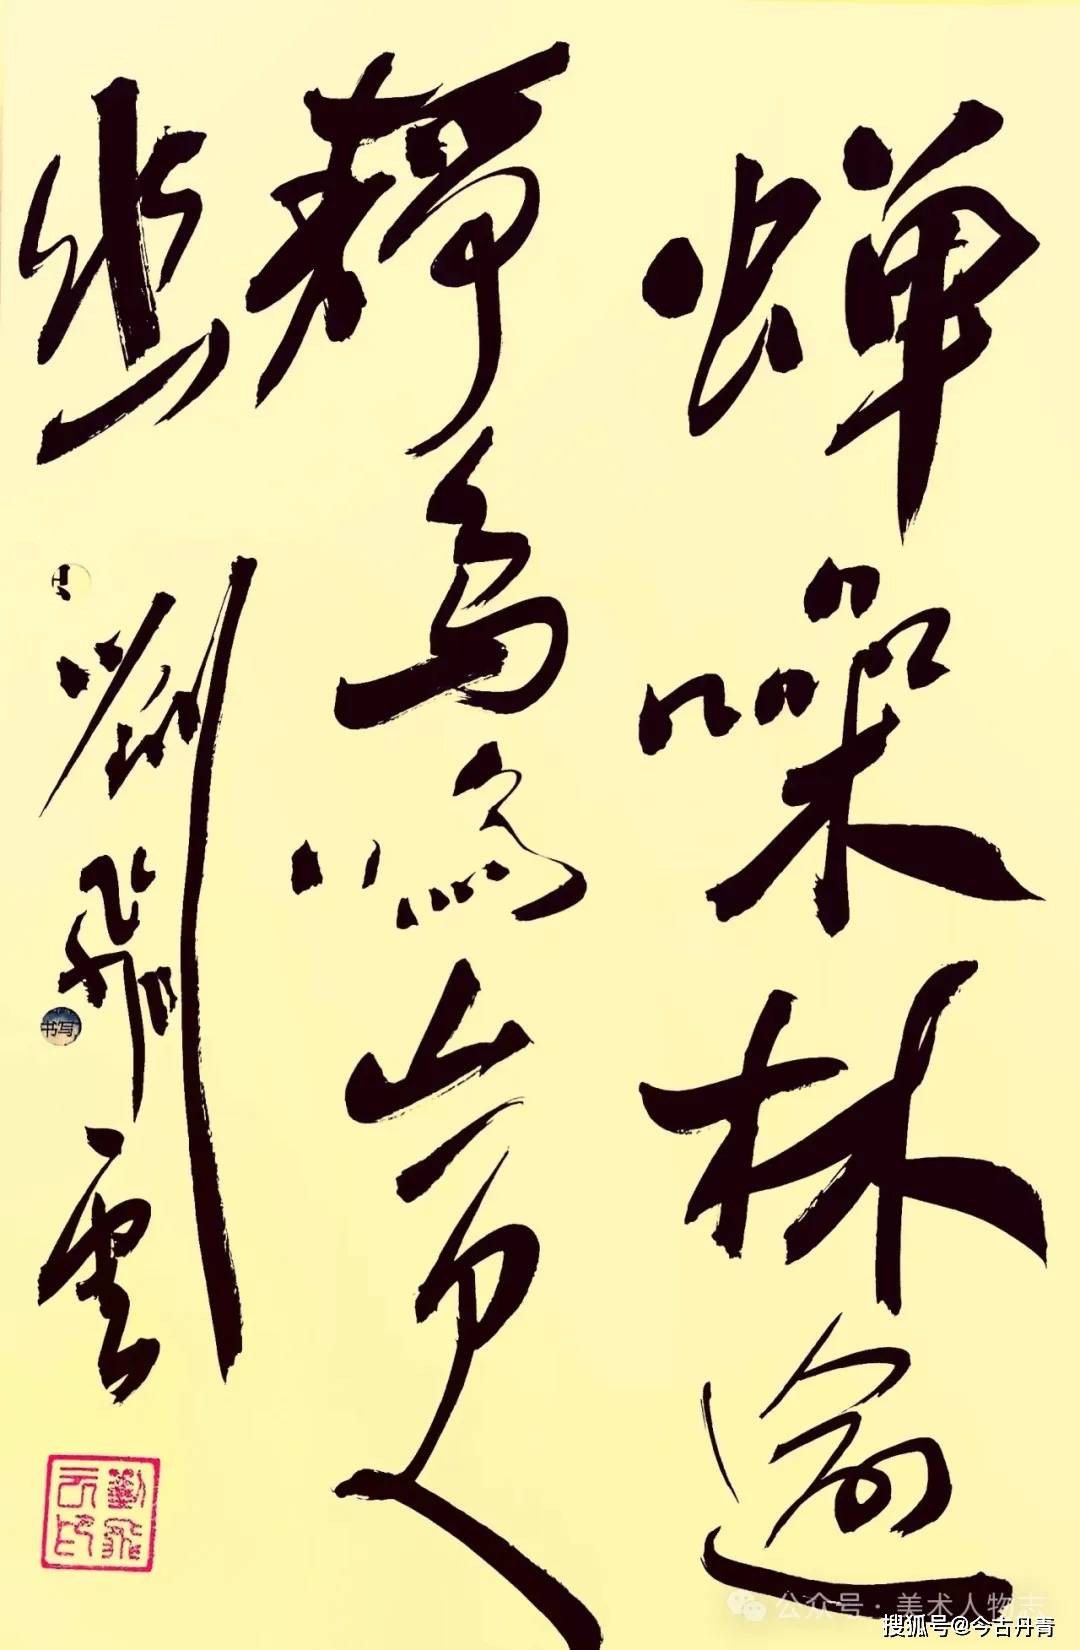 蝉噪林逾
静鸟鳴山更
幽
劉飛雲
书写
劉飛云印
公众号·美术人物志
搜狐号@今古丹青